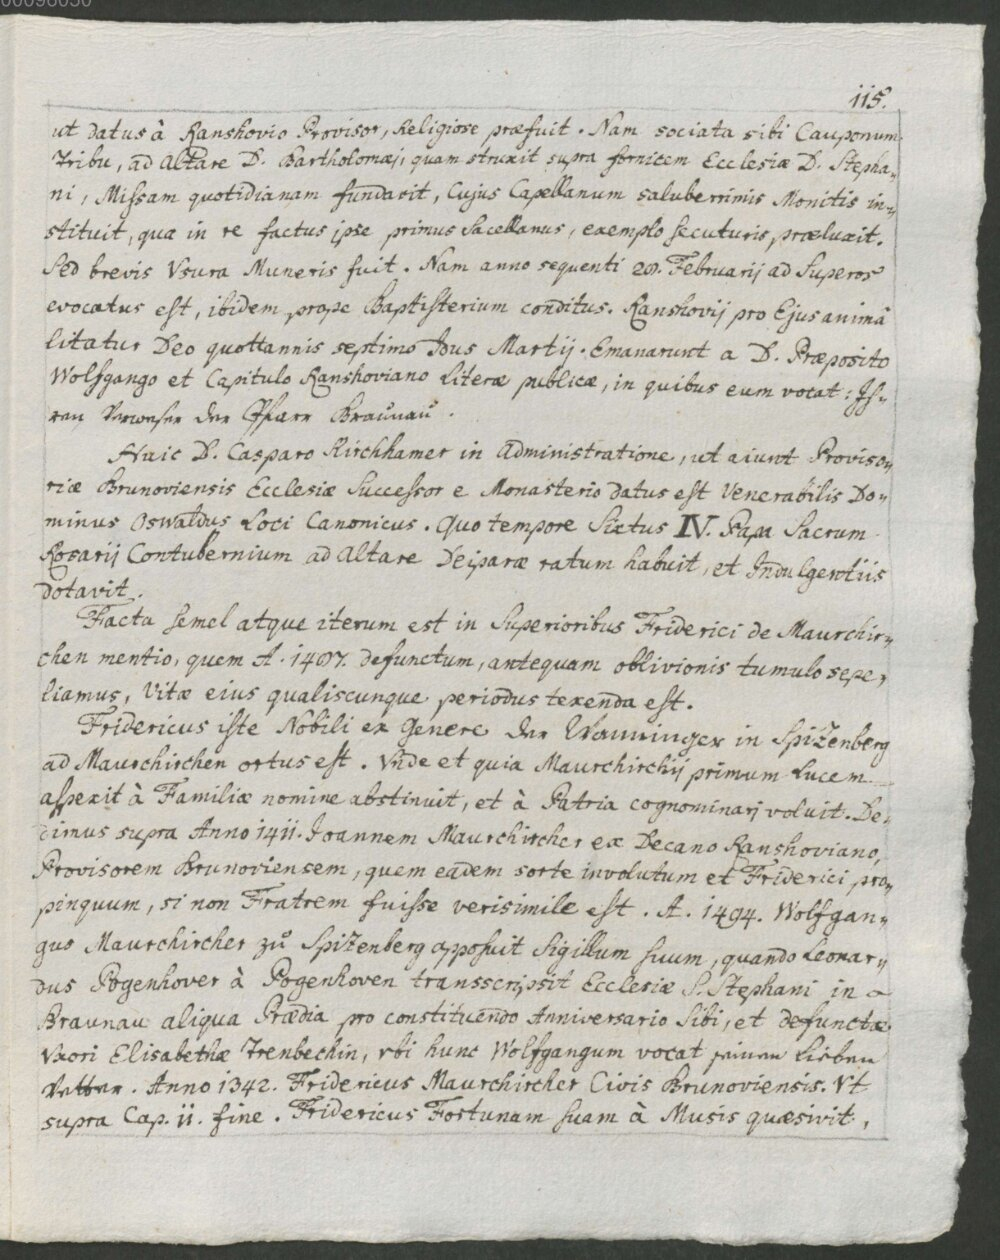 00096050
115.
ut datus à Ranshovio Provisor, Religiose præfuit. Nam sociata sibi Cauponum
Tribu, ad Altare D. Bartholomæj, quam struxit supra fornicem Ecclesiæ D. Stepha-
ni, Missam quotidianam fundavit, Cujus Capellanum saluberrimis Monitis in-
stituit, qua in re factus ipse primus Sacellanus, exemplo secuturis præluxit.
Sed brevis Usura Muneris fuit. Nam anno sequenti 28. Februarij ad Superos
evocatus est, ibidem prope Baptisterium conditus. Ranshovij pro Ejus animâ
litatur Deo quottannis septimo Idus Martij. Emanarunt a D. Præposito
Wolfgango et Capitulo Ranshoviano Literæ publicæ, in quibus eum vocat: Ih-
ren Verweser der Pfarr Braunau.
Huic D. Casparo Kirchhamer in Administratione, ut aiunt Proviso-
riæ Brunoviensis Ecclesiæ Successor e Monasterio datus est Venerabilis Do-
minus Oswaldus Loci Canonicus. Quo tempore Sixtus IV. Papa Sacrum
Rosarij Contubernium ad Altare Deiparæ ratum habuit, et Indulgentiis
dotavit.
Facta semel atque iterum est in Superioribus Friderici de Maurchir-
chen mentio, quem A. 1487. defunctum, antequam oblivionis tumulo sepe-
liamus, Vitæ eius qualiscunque periodus texenda est.
Fridericus iste Nobili ex Genere der Wanninger in Spizenberg
ad Maurchirchen ortus est. Unde et quia Maurchirchij primum Lucem
aspexit à Familiæ nomine abstinuit, et à Patria cognominarj voluit. De-
dimus supra Anno 1411. Joannem Maurchircher ex Decano Ranshoviano,
Provisorem Brunoviensem, quem eadem sorte involutum et Friderici pro-
pinquum, si non Fratrem fuisse verisimile est. A. 1494. Wolfgan-
gus Maurchircher zu Spizenberg apposuit Sigillum suum, quando Leonar-
dus Pogenhover à Pogenhoven transscripsit Ecclesiæ S. Stephani in
Braunau aliqua Prædia pro constituendo Anniversario Sibi, et defunctæ
Uxori Elisabethæ Trenbechin, ubi hunc Wolfgangum vocat seinen Lieben
Vetter. Anno 1342. Fridericus Maurchircher Civis Brunoviensis. Ut
supra Cap. 11. fine. Fridericus Fortunam suam à Musis quæsivit,